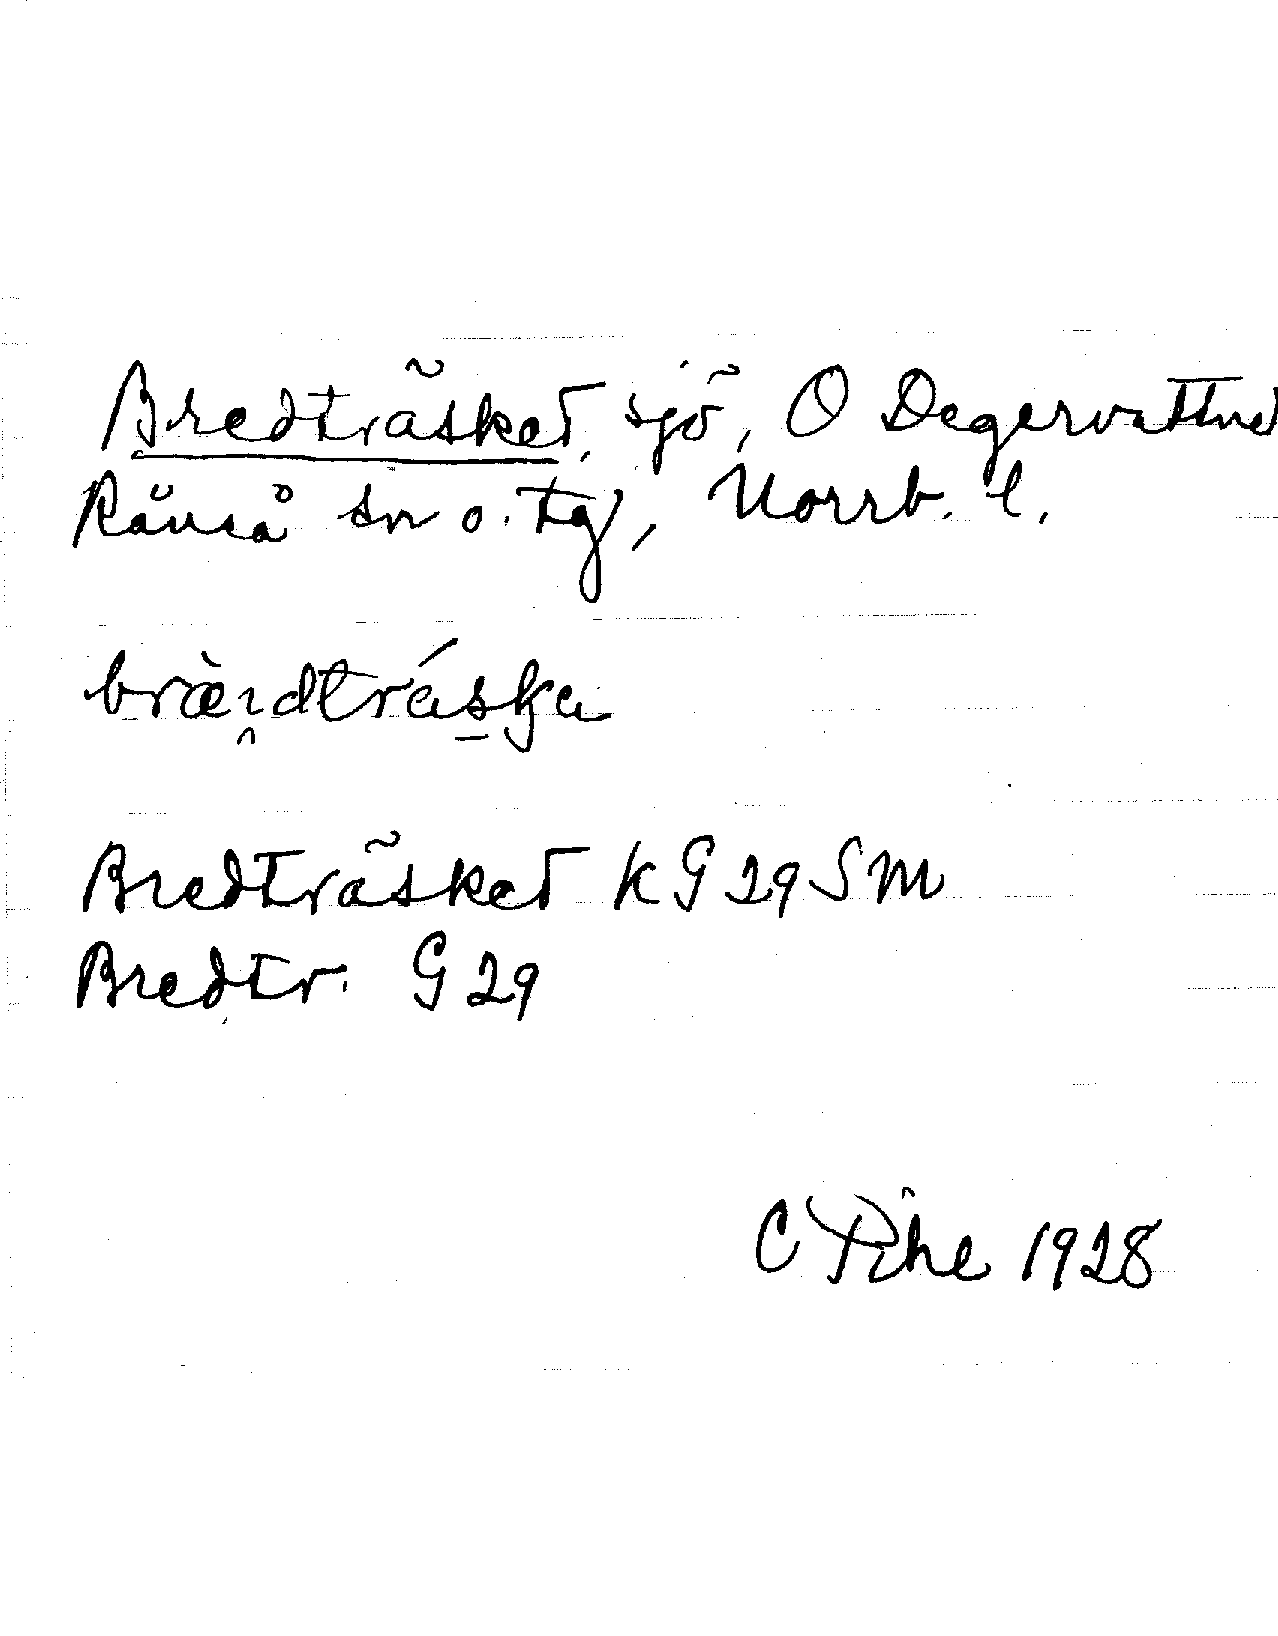 Bredträsket, sjö, O Degervattnet
Råneå sn o. tg, Norrb. l.
Bredträsket KG 29 SM
Bredtr. G 29
C Pihl 1928